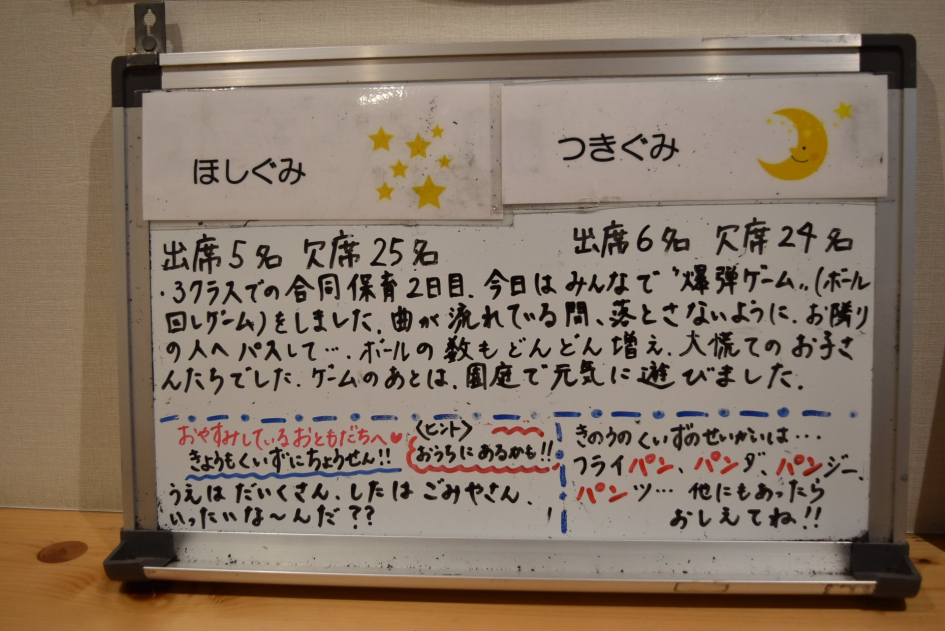 ほしぐみ
つきぐみ
出席5名 欠席25名
出席6名 欠席24名
・3クラスでの合同保育2日目、今日はみんなで〝爆弾ゲーム〟(ボール
回しゲーム)をしました。曲が流れている間、落とさないように、お隣り
の人へパスして…。ボールの数もどんどん増え、大慌てのお子さ
んたちでした。ゲームのあとは、園庭で元気に遊びました。
おやすみしているおともだちへ♥
きょうもくいずにちょうせん!!
〈ヒント〉
おうちにあるかも!!
うえはだいくさん、したはごみやさん、
いったいな〜んだ??
きのうのくいずのせいかいは…
フライパン、パンダ、パンジー、
パンツ…他にもあったら
おしえてね!!